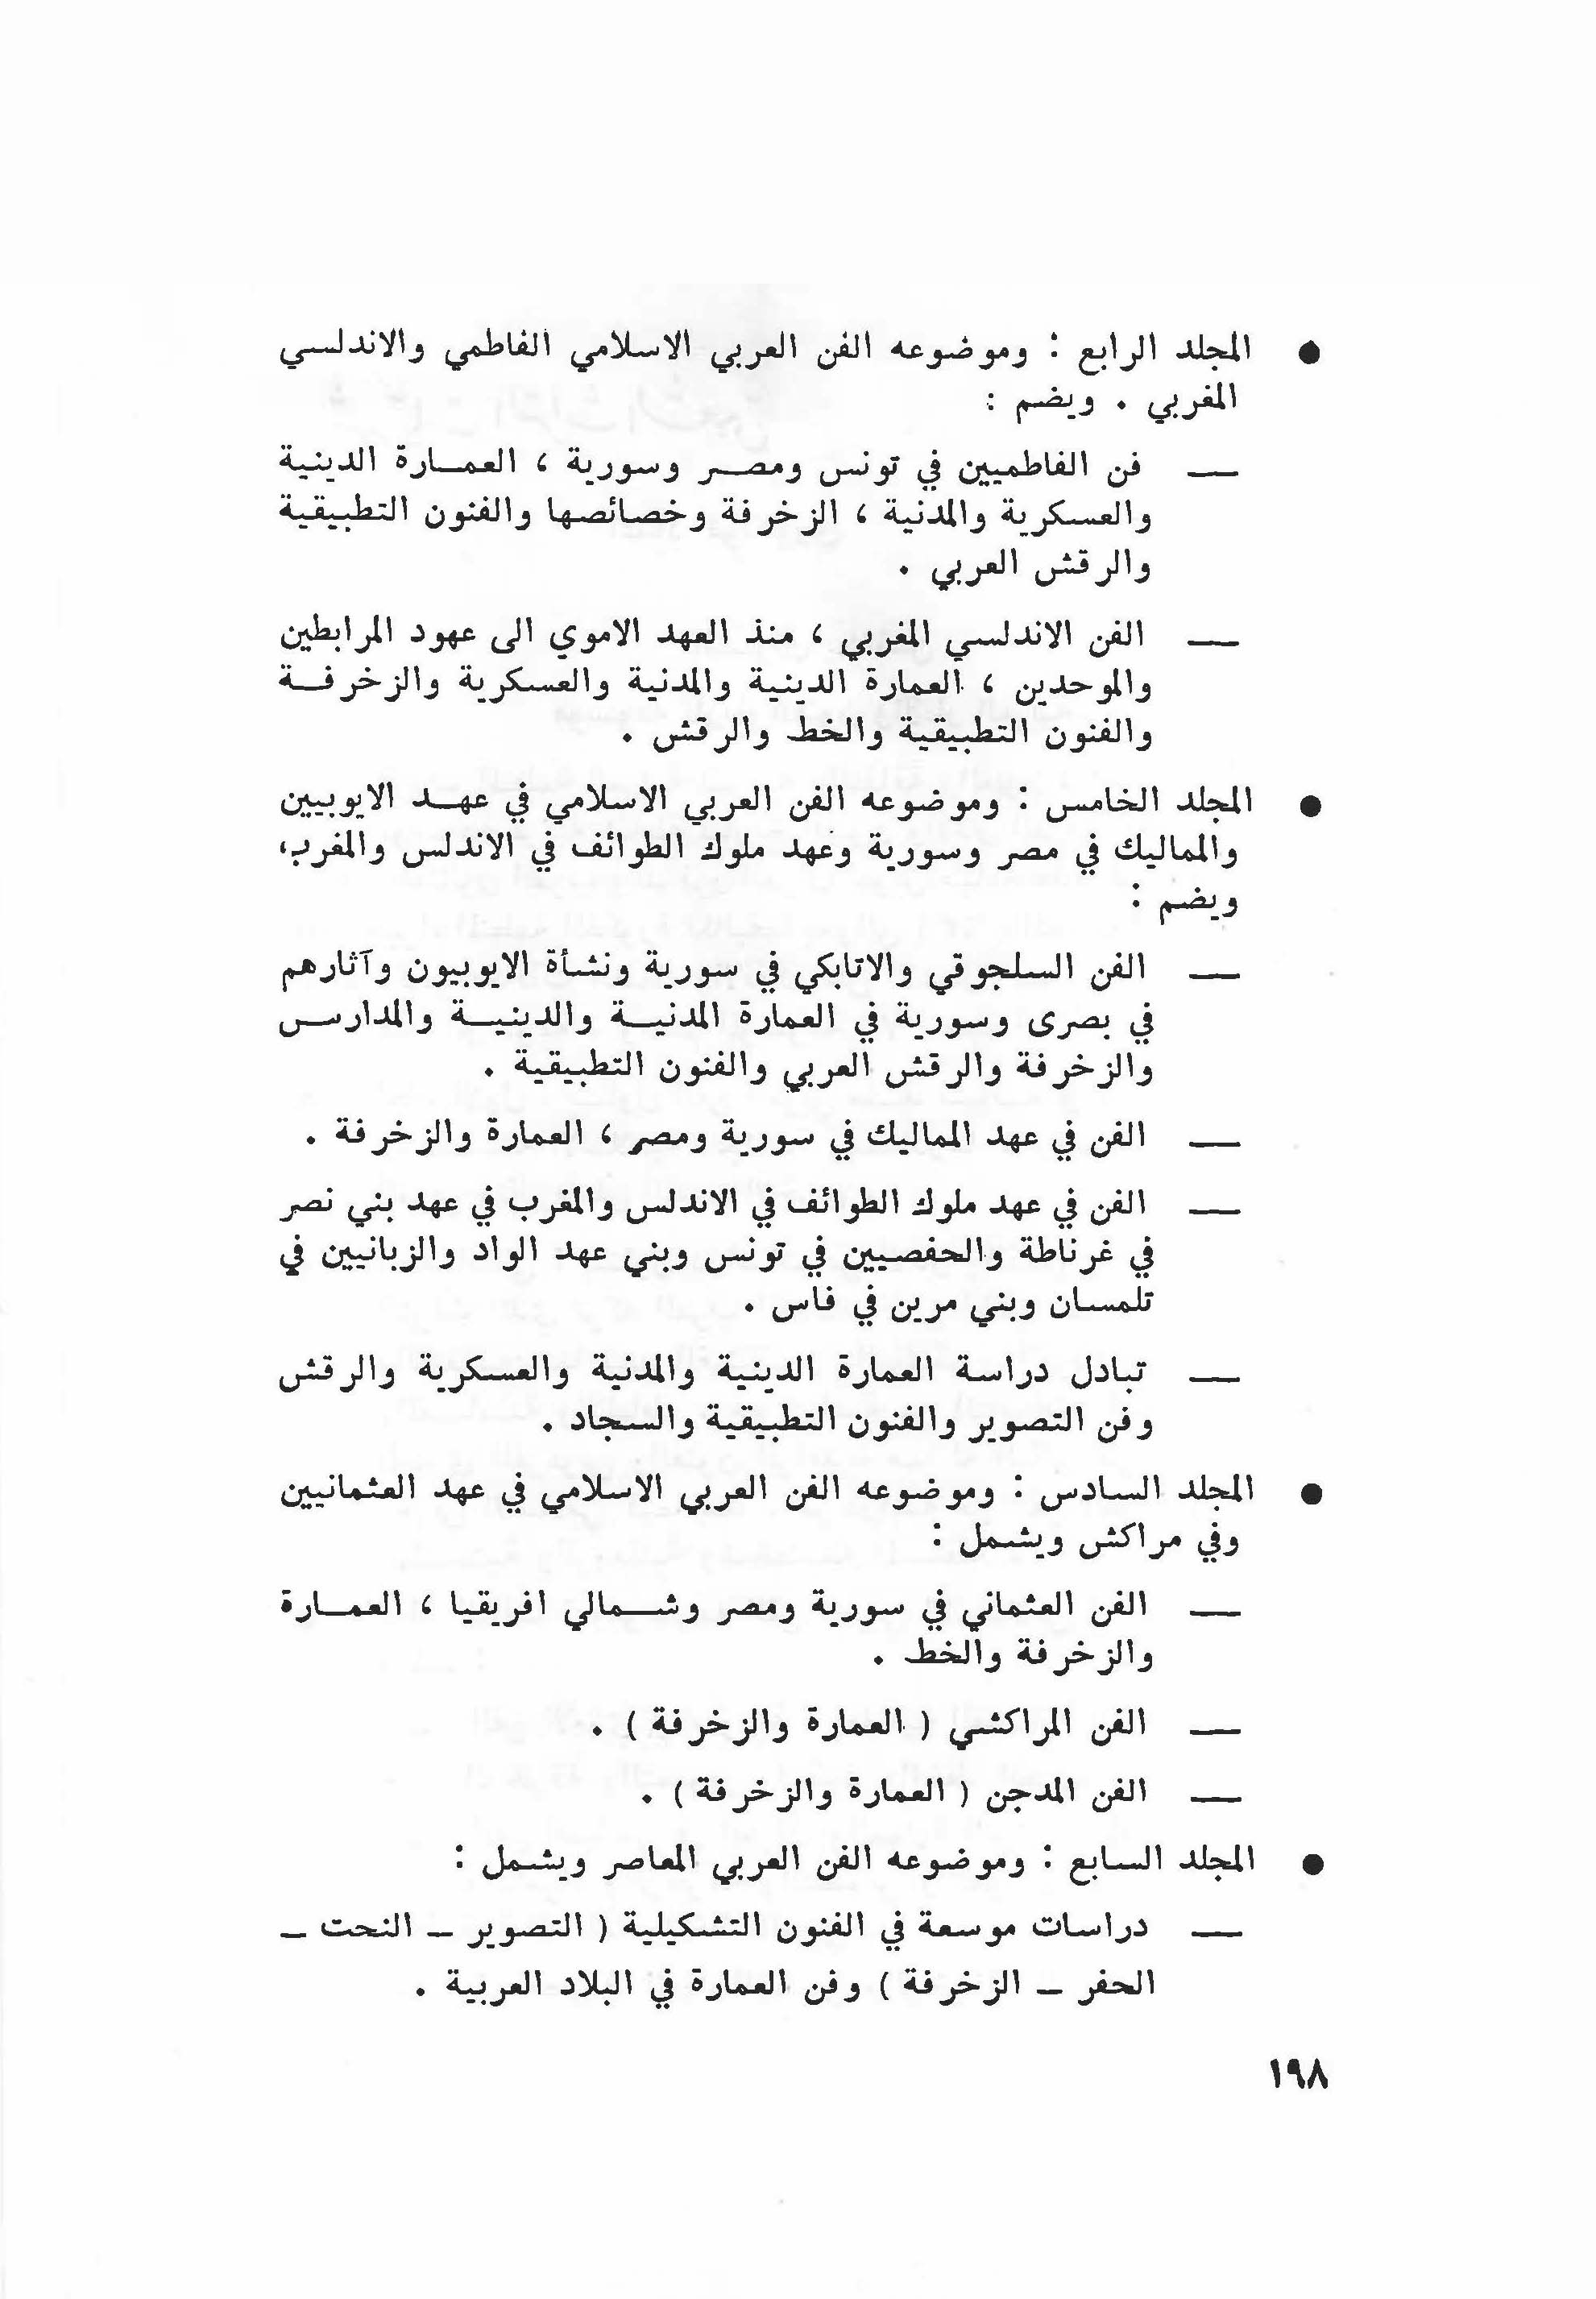 ● المجلد الرابع : وموضوعه الفن العربي الاسلامي الفاطمي والاندلسي
المغربي . ويضم :
— فن الفاطميين في تونس ومصر وسورية ، العمارة الدينية
والعسكرية والمدنية ، الزخرفة وخصائصها والفنون التطبيقية
والرقش العربي .
— الفن الاندلسي المغربي ، منذ العهد الاموي الى عهود المرابطين
والموحدين ، العمارة الدينية والمدنية والعسكرية والزخرفة
والفنون التطبيقية والخط والرقش .
● المجلد الخامس : وموضوعه الفن العربي الاسلامي في عهد الايوبيين
والماليك في مصر وسورية وعهد ملوك الطوائف في الاندلس والمغرب،
ويضم :
— الفن السلجوقي والاتابكي في سورية ونشأة الايوبيون وآثارهم
في بصرى وسورية في العمارة المدنية والدينية والمدارس
والزخرفة والرقش العربي والفنون التطبيقية .
— الفن في عهد المماليك في سورية ومصر ، العمارة والزخرفة .
— الفن في عهد ملوك الطوائف في الاندلس والمغرب في عهد بني نصر
في غرناطة والحفصيين في تونس وبني عهد الواد والزبانيين في
تلمسان وبني مرين في فاس .
— تبادل دراسة العمارة الدينية والمدنية والعسكرية والرقش
وفن التصوير والفنون التطبيقية والسجاد .
● المجلد السادس : وموضوعه الفن العربي الاسلامي في عهد العثمانيين
وفي مراكش ويشمل :
— الفن العثماني في سورية ومصر وشمالي افريقيا ، العمارة
والزخرفة والخط .
— الفن المراكشي ( العمارة والزخرفة ) .
— الفن المدجن ( العمارة والزخرفة ) .
● المجلد السابع : وموضوعه الفن العربي المعاصر ويشمل :
— دراسات موسعة في الفنون التشكيلية ( التصوير – النحت –
الحفر – الزخرفة ) وفن العمارة في البلاد العربية .
١٩٨